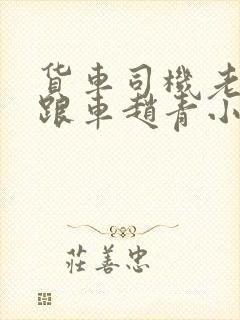 貨車司機老
跟車趙青小
莊善忠